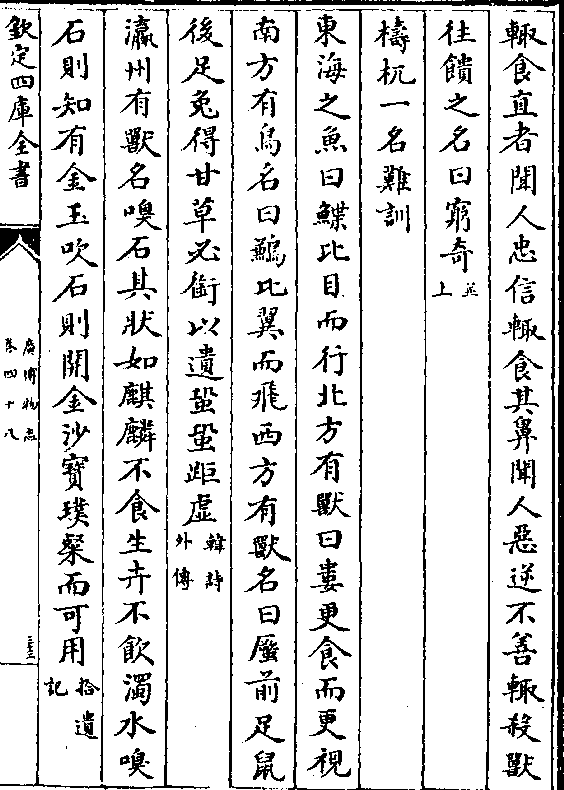 輙食直者聞人忠信輙食其鼻聞人惡逆不善輙殺獸
往饋之名曰窮奇並上
檮杌一名難訓
東海之魚曰鰈比目而行北方有獸曰婁更食而更視
南方有鳥名曰鶼比翼而飛西方有獸名曰蟨前足鼠
後足兔得甘草必銜以遺蛩蛩距虛韓詩外傳
瀛州有獸名嗅石其狀如麒麟不食生卉不飲濁水嗅
石則知有金玉吹石則開金沙寶璞粲而可用拾遺記
欽定四庫全書
廣博物志
卷四十八